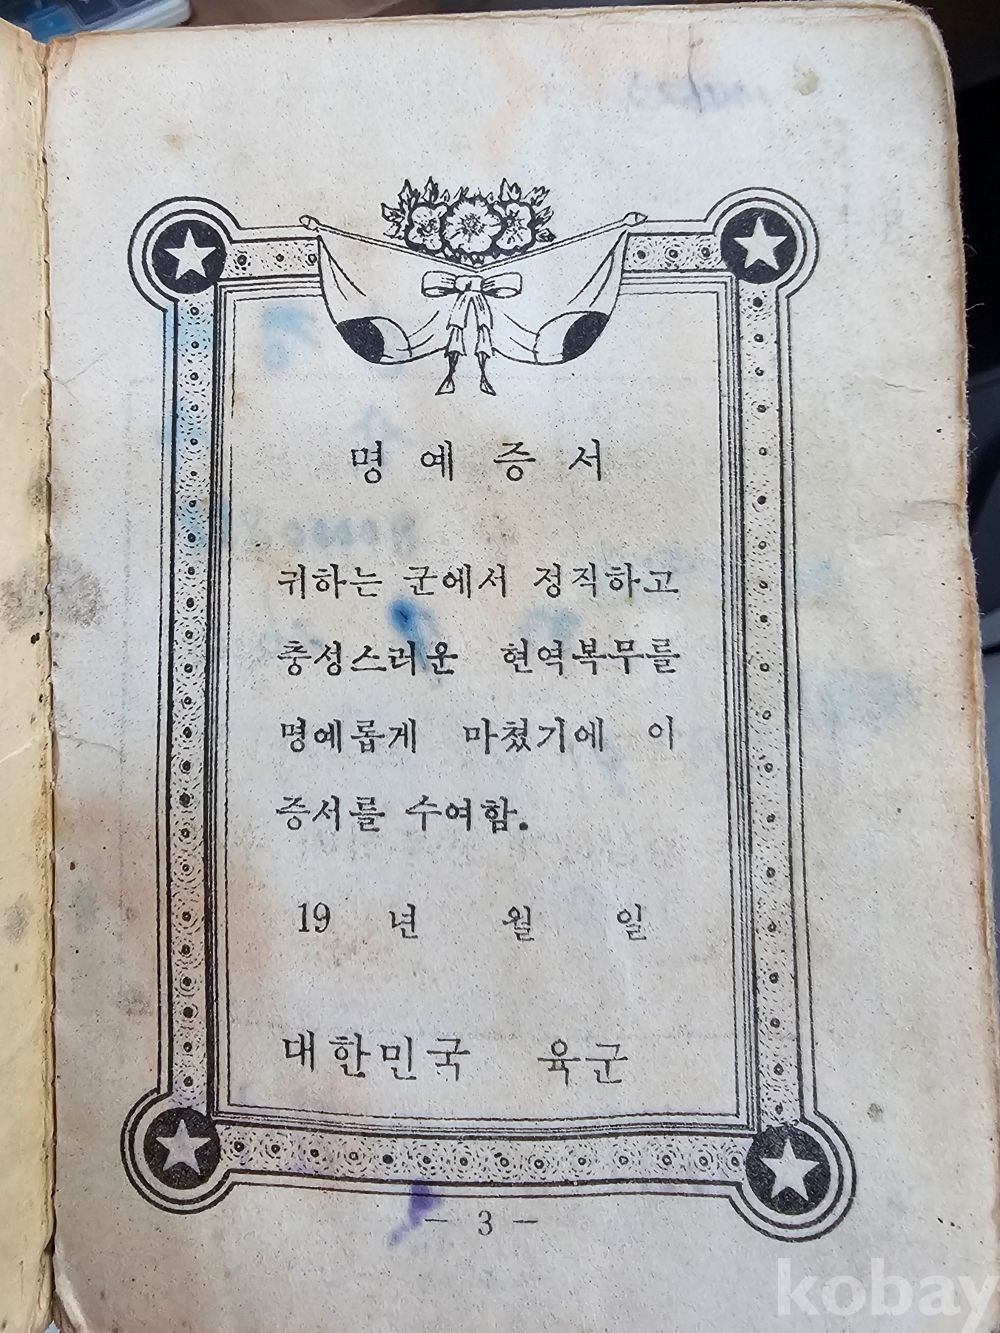 명예증서
귀하는 군에서 정직하고
충성스러운 현역복무를
명예롭게 마쳤기에 이
증서를 수여함.
19 년 월 일
대한민국 육군
- 3 -
kobay